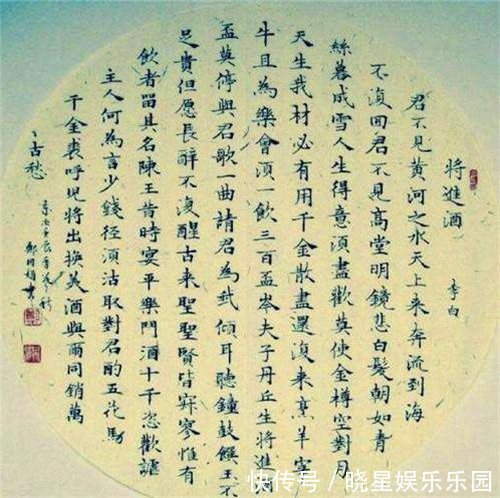 將進酒
李白
君不見黃河之水天上来奔流到海
不復回君不見高堂明鏡悲白髮朝如青
絲暮成雪人生得意須盡歡莫使金樽空對月
天生我材必有用千金散盡還復来烹羊宰
牛且為樂會須一飲三百盃岑夫子丹丘生將進
盃莫停與君歌一曲請君為我傾耳聽鐘鼓饌玉不
足貴但愿長醉不復醒古来聖聖賢皆寂寞惟有
飲者留其名陳王昔時宴平樂鬥酒十千恣歡謔
主人何為言少錢徑須沽取對君酌五花馬
千金裘呼児將出換美酒與爾同銷萬
古愁
快传号 / 晓星娱乐乐园